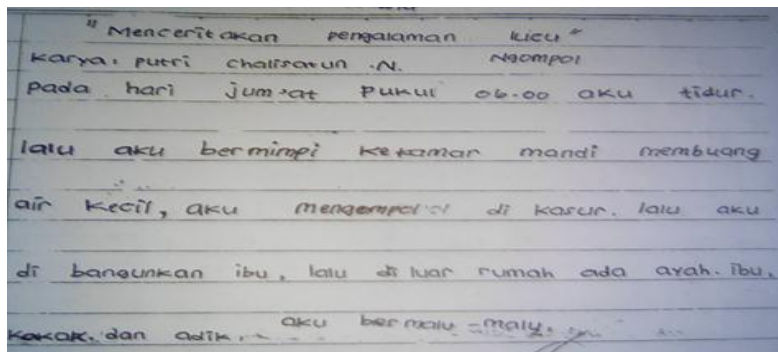 "Menceritakan pengalaman lucu"
Karya. putri chalisatun .N. Ngompol
pada hari jum'at pukul 06.00 aku tidur.
lalu aku bermimpi kekamar mandi membuang
air kecil, aku mengompol di kasur. lalu aku
di bangunkan ibu, lalu di luar rumah ada ayah. ibu,
kakak. dan adik, aku bermalu-malu.